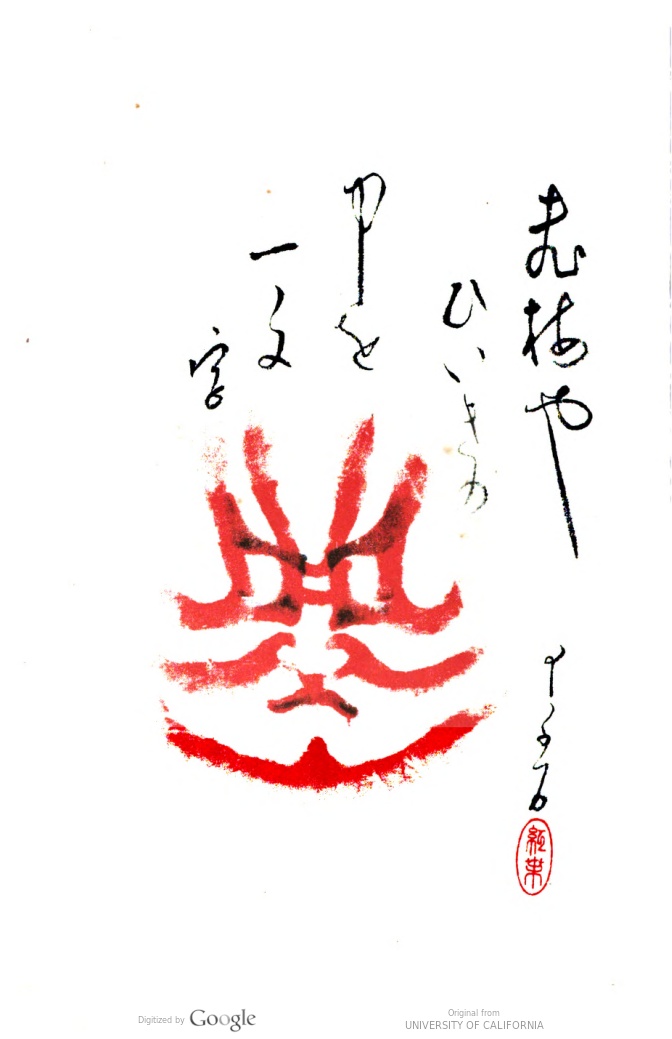 老梅や
ひいきの
中を
一文
字
Digitized by Google
Original from
UNIVERSITY OF CALIFORNIA